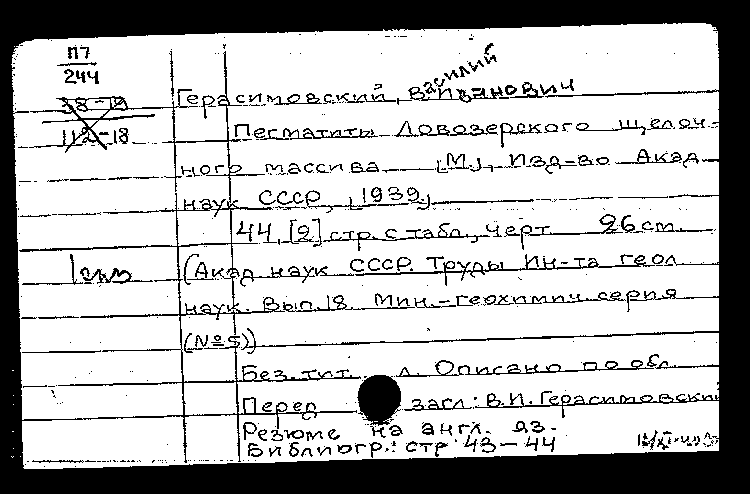 П7
244
38-19
112-18
Герасимовский, Василий Иванович
Пегматиты Ловозерского щелоч-
ного массива [М.], Изд-во Акад.
наук СССР, [1939]
44, [2] стр. с табл., черт. 26 см.
1 экз
(Акад. наук СССР. Труды Ин-та геол.
наук. Вып. 18. Мин.-геохимич. серия
(№5))
Без. тит. л. Описано по обл.
Перед загл: В.И. Герасимовский
Резюме на англ. яз.
Библиогр.: стр 43-44